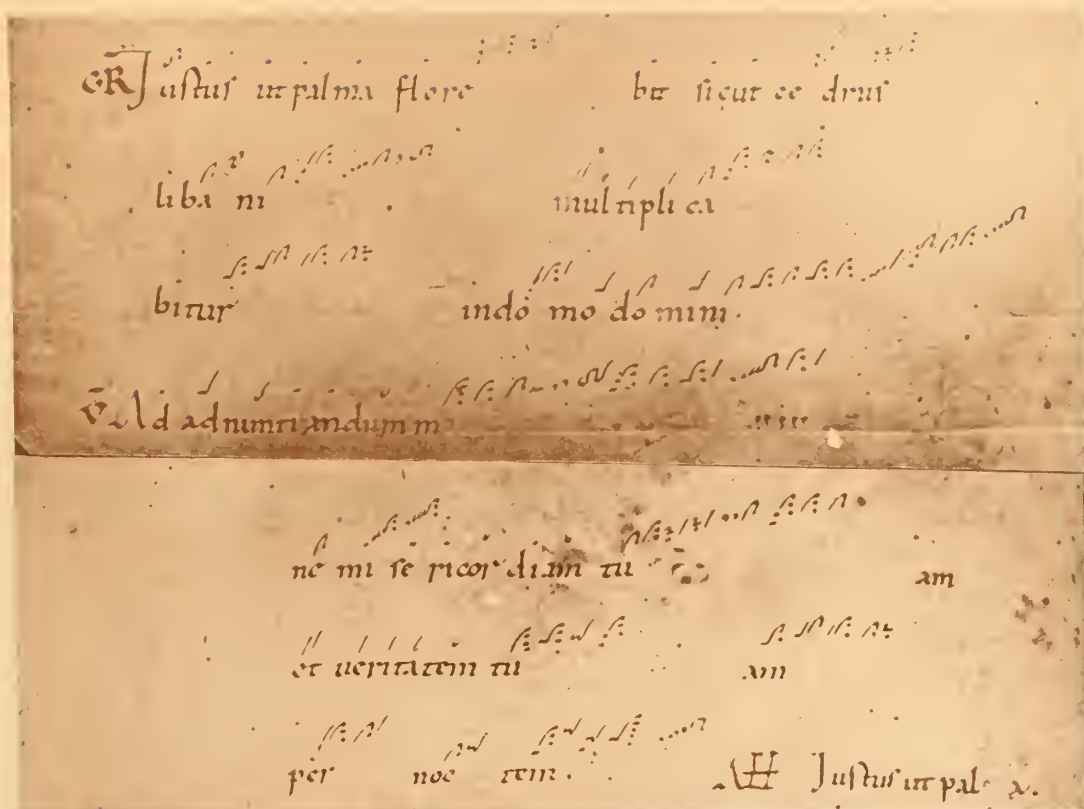 GR Justus ut palma flore bit sicut ce drus
liba ni multipli ca
bitur indo mo domini.
V Ad adnuntiandum m
ne mi se ricordiam tu am
et ueritatem tu am
per noc tem. All Justus ut pal a.